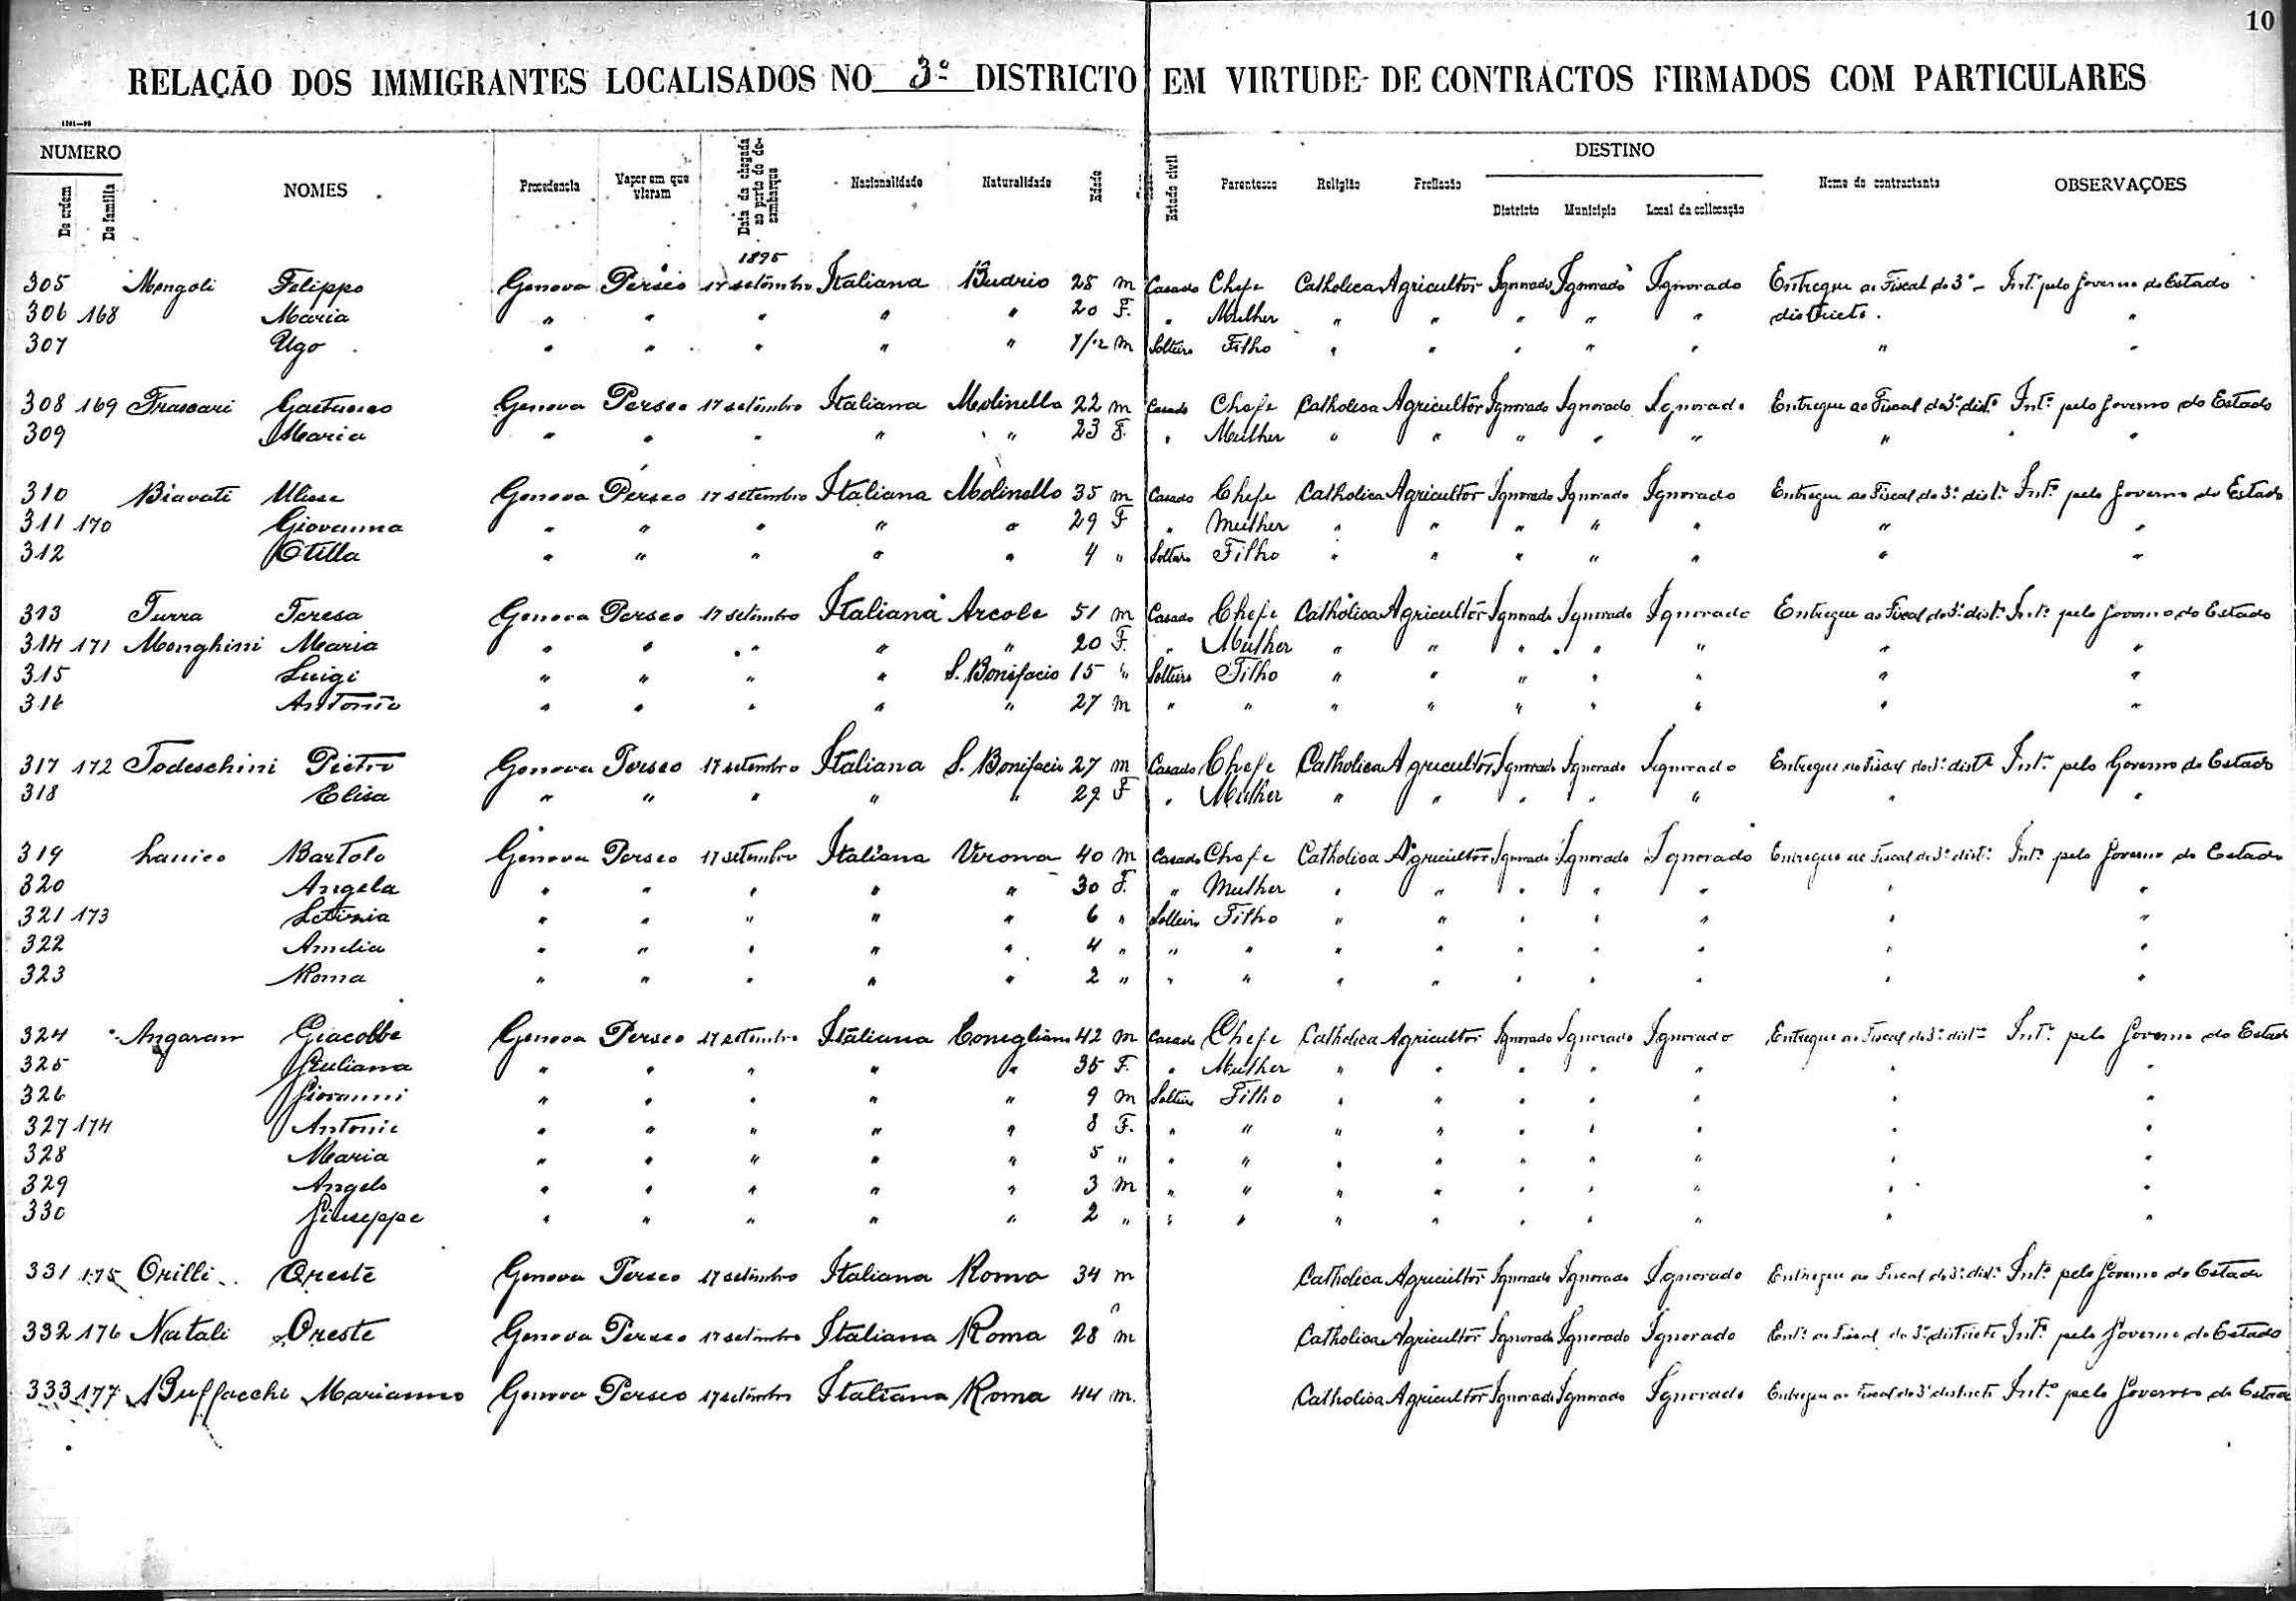 10
RELAÇÃO DOS IMMIGRANTES LOCALISADOS NO 3º DISTRICTO EM VIRTUDE DE CONTRACTOS FIRMADOS COM PARTICULARES
NUMERO DESTINO
De ordem De familia NOMES Procedencia Vapor em que vieram Data da chegada ao porto do desembarque Nacionalidade Naturalidade Edade Estado civil Parentesco Religião Profissão Districto Municipio Local da collocação Nome do contractante OBSERVAÇÕES
1895
305 Mengoli Felippo Genova Perseo 17 setembro Italiana Budrio 25 m Casado Chefe Catholica Agricultor Ignorado Ignorado Ignorado Entregue ao Fiscal do 3º Int.º pelo Governo do Estado
306 168 Maria " " " " " 20 F. " Mulher " " " " " districto. "
307 Ugo " " " " " 1/12 m Solteiro Filho " " " " " " "
308 169 Frascari Gaetano Genova Perseo 17 setembro Italiana Molinella 22 m Casado Chefe Catholica Agricultor Ignorado Ignorado Ignorado Entregue ao Fiscal do 3º dist.º Int.º pelo Governo do Estado
309 Maria " " " " " 23 F. " Mulher " " " " " " "
310 Biavati Ulisse Genova Perseo 17 setembro Italiana Molinello 35 m Casado Chefe Catholica Agricultor Ignorado Ignorado Ignorado Entregue ao Fiscal do 3º dist.º Int.º pelo Governo do Estado
311 170 Giovanna " " " " " 29 F " Mulher " " " " " " "
312 Otilla " " " " " 4 " Solteiro Filho " " " " " " "
313 Turra Teresa Genova Perseo 17 setembro Italiana Arcole 51 m Casado Chefe Catholica Agricultor Ignorado Ignorado Ignorado Entregue ao Fiscal do 3º dist.º Int.º pelo Governo do Estado
314 171 Menghini Maria " " " " " 20 F. " Mulher " " " " " " "
315 Luigi " " " " S. Bonifacio 15 " Solteiro Filho " " " " " " "
316 Antonio " " " " " 27 m " " " " " " " " "
317 172 Todeschini Pietro Genova Perseo 17 setembro Italiana S. Bonifacio 27 m Casado Chefe Catholica Agricultor Ignorado Ignorado Ignorado Entregue ao Fiscal do 3º dist.º Int.º pelo Governo do Estado
318 Elisa " " " " " 29 F " Mulher " " " " " " "
319 Bartolo Genova Perseo 17 setembro Italiana Verona 40 m Casado Chefe Catholica Agricultor Ignorado Ignorado Ignorado Entregue ao Fiscal do 3º dist.º Int.º pelo Governo do Estado
320 Angela " " " " " 30 F. " Mulher " " " " " " "
321 173 Letizia " " " " " 6 " Solteiro Filho " " " " " " "
322 Amelia " " " " " 4 " " " " " " " " " "
323 Roma " " " " " 2 " " " " " " " " " "
324 Angaran Giacobbe Genova Perseo 17 setembro Italiana Conegliano 42 m Casado Chefe Catholica Agricultor Ignorado Ignorado Ignorado Entregue ao Fiscal do 3º dist.º Int.º pelo Governo do Estado
325 Giuliana " " " " " 35 F. " Mulher " " " " " " "
326 Giovanni " " " " " 9 m Solteiro Filho " " " " " " "
327 174 Antonie " " " " " 8 F. " " " " " " " " "
328 Maria " " " " " 5 " " " " " " " " " "
329 Angelo " " " " " 3 m " " " " " " " " "
330 Giuseppe " " " " " 2 " " " " " " " " " "
331 175 Orilli Oreste Genova Perseo 17 setembro Italiana Roma 34 m Catholica Agricultor Ignorado Ignorado Ignorado Entregue ao Fiscal do 3º dist.º Int.º pelo Governo do Estado
332 176 Natali Oreste Genova Perseo 17 setembro Italiana Roma 28 m Catholica Agricultor Ignorado Ignorado Ignorado Ent.º ao Fiscal do 3º districto Int.º pelo Governo do Estado
333 177 Buffacchi Marianno Genova Perseo 17 setembro Italiana Roma 44 m. Catholica Agricultor Ignorado Ignorado Ignorado Entregue ao Fiscal do 3º districto Int.º pelo Governo do Estado